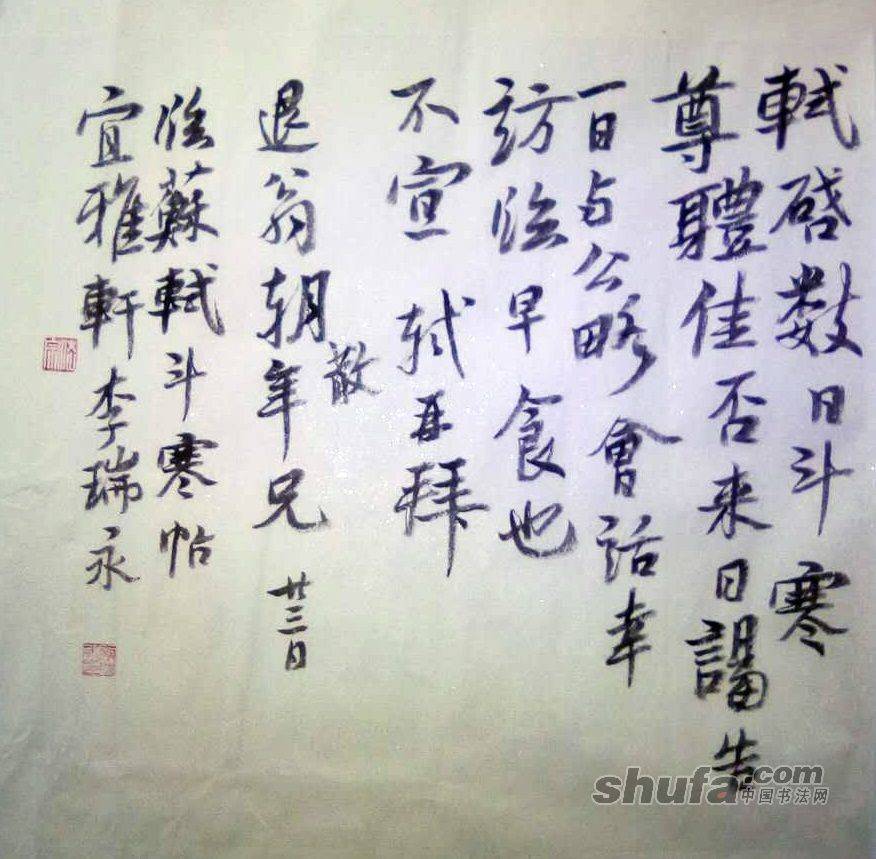 軾啓數日斗寒
尊體佳否来日謁告
一日与公略會話幸
訪臨早食也
不宣 軾再拜
退翁朝散年兄 廿三日
臨蘇軾斗寒帖
宜雅軒李瑞永
shufa.com
中国书法网